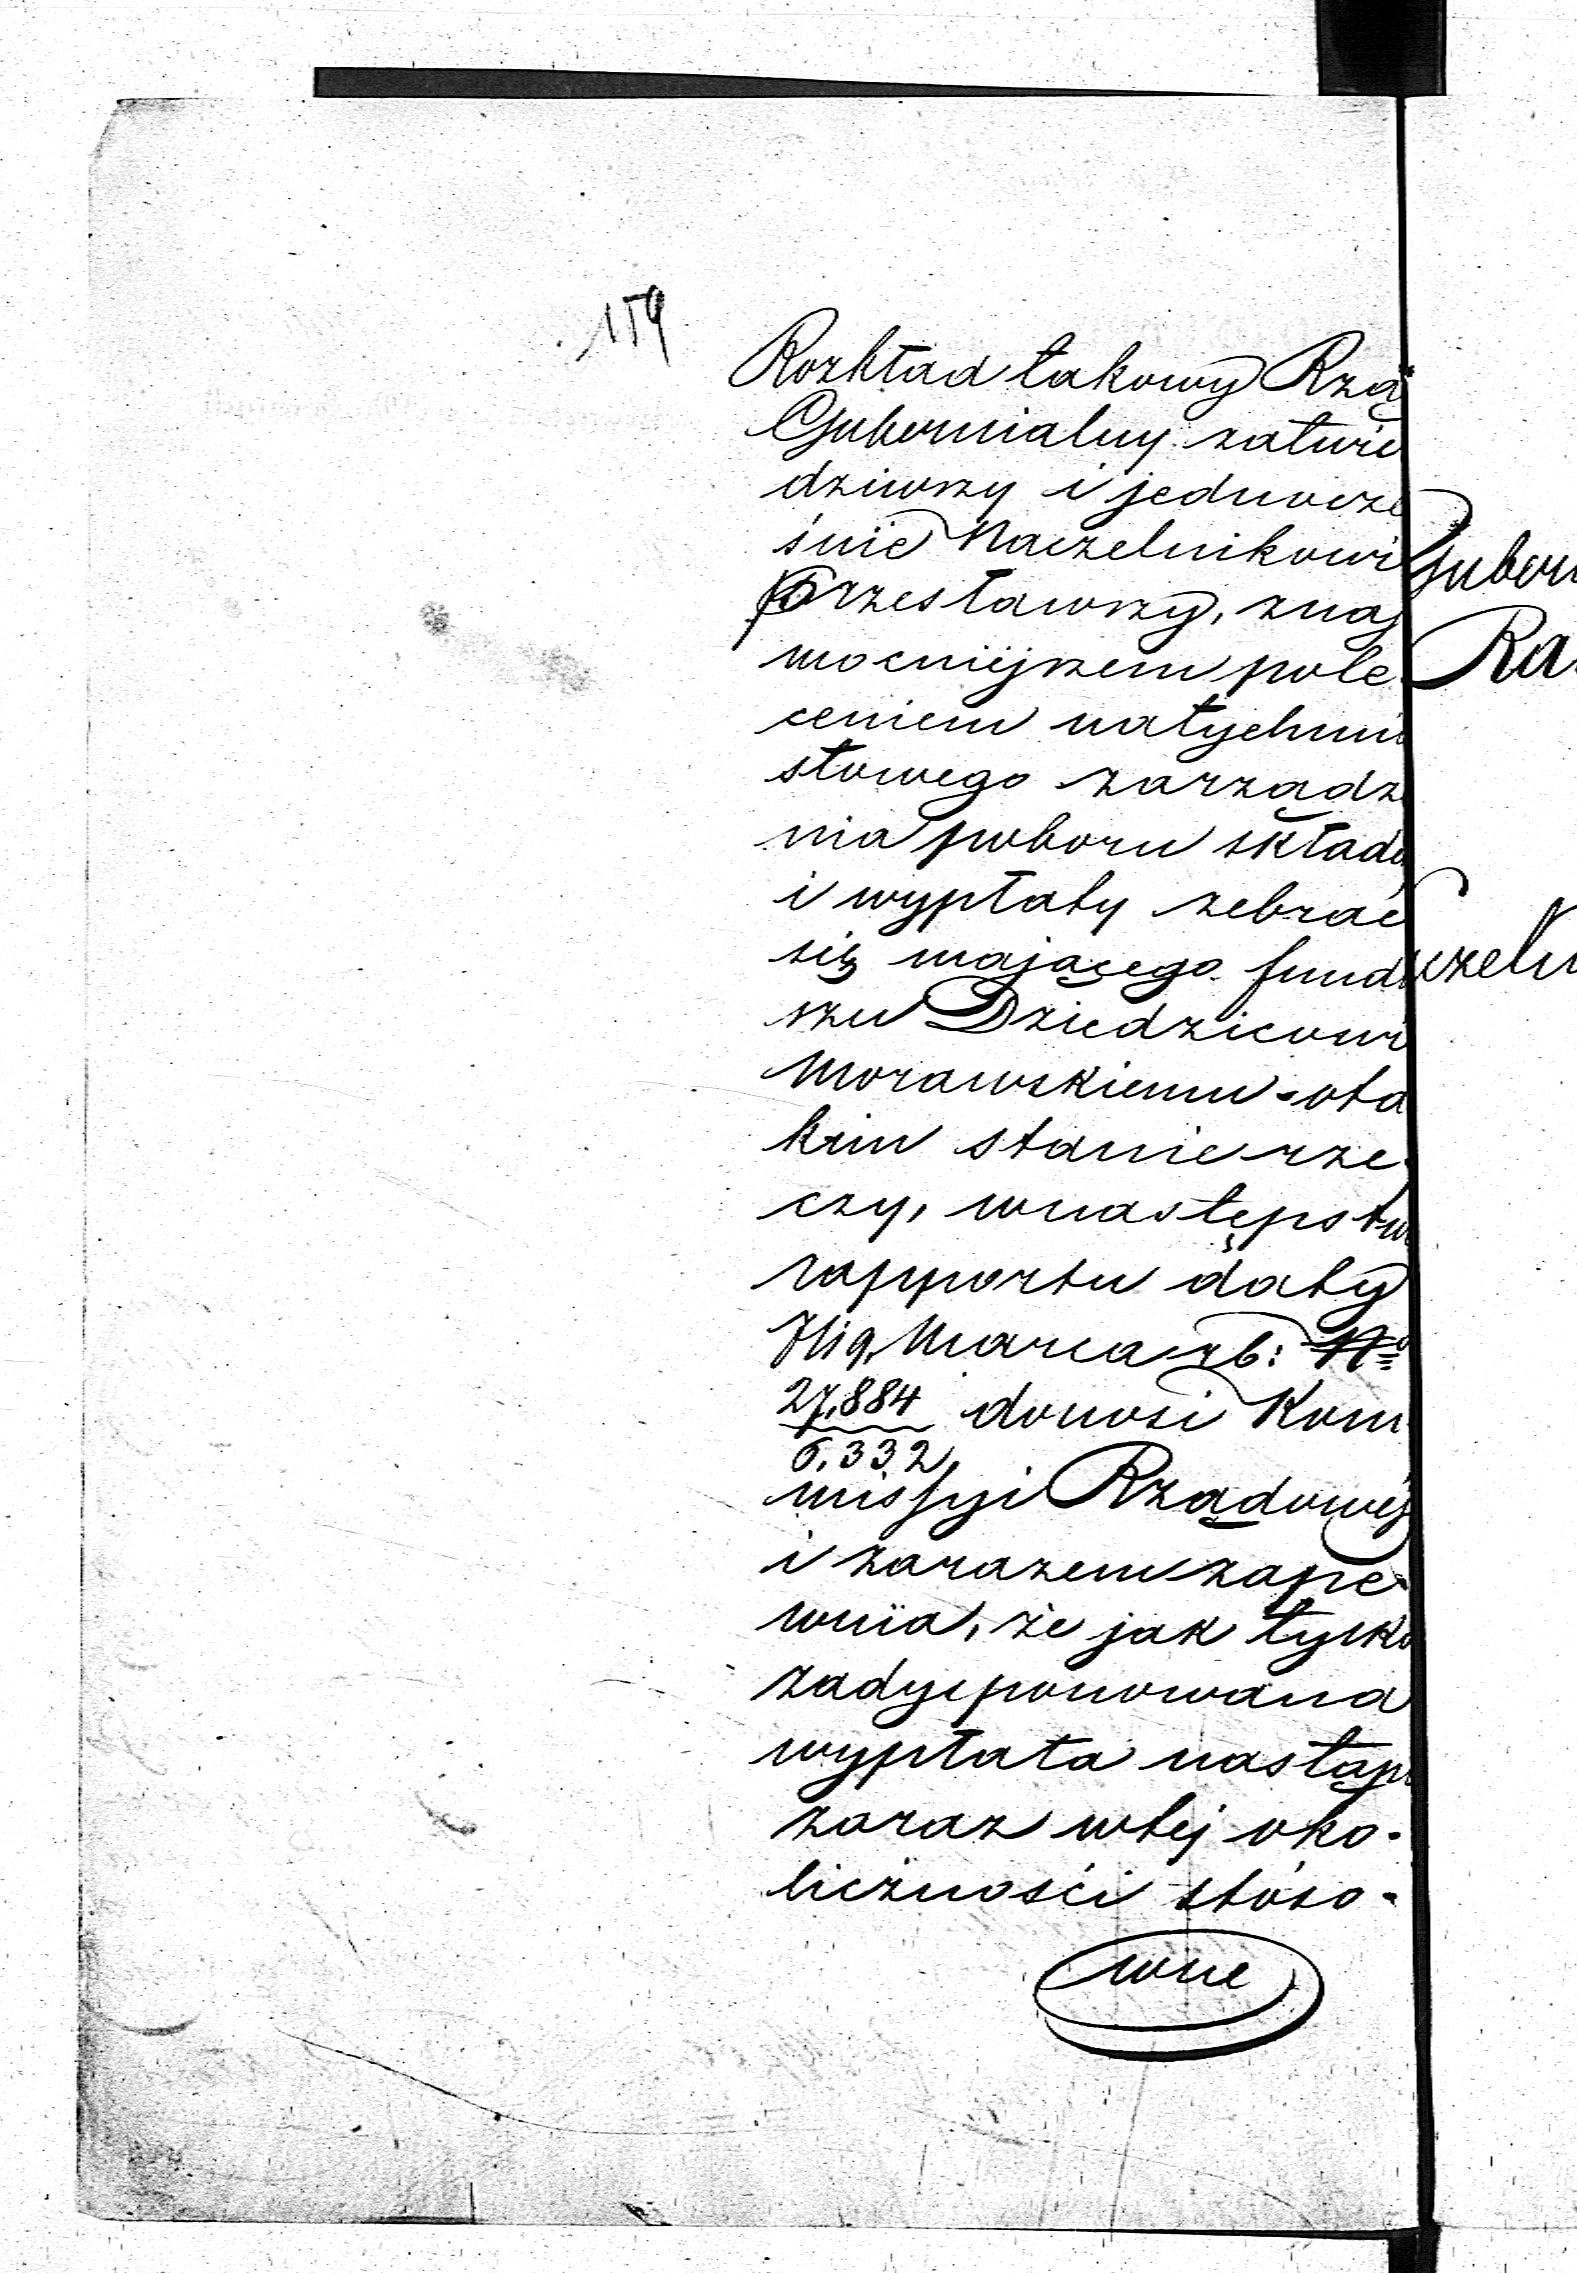 159
Rozkład takowy Rzą
Gubernialny zatwie
dziwszy i jednocze
śnie Naczelnikowi
przesławszy, znaj
mocniejszem pole
ceniem natychmia
stowego zarządze
nia poboru składu
i wypłaty zebrać
się mającego fundu
szu Dziedzicowi
Morawskiemu - ota
kim stanie rze-
czy, wnastępstw
rapportu daty
7/19 Marca rb: No
27,884
6,332
donosi Kom
missyi Rządowéj
i zarazem zape-
wnia, że jak tylko
zadysponowana
wypłata nastąpi
zaraz wtej oko-
liczności stóso-
wne
Gubern
Ra
czeln